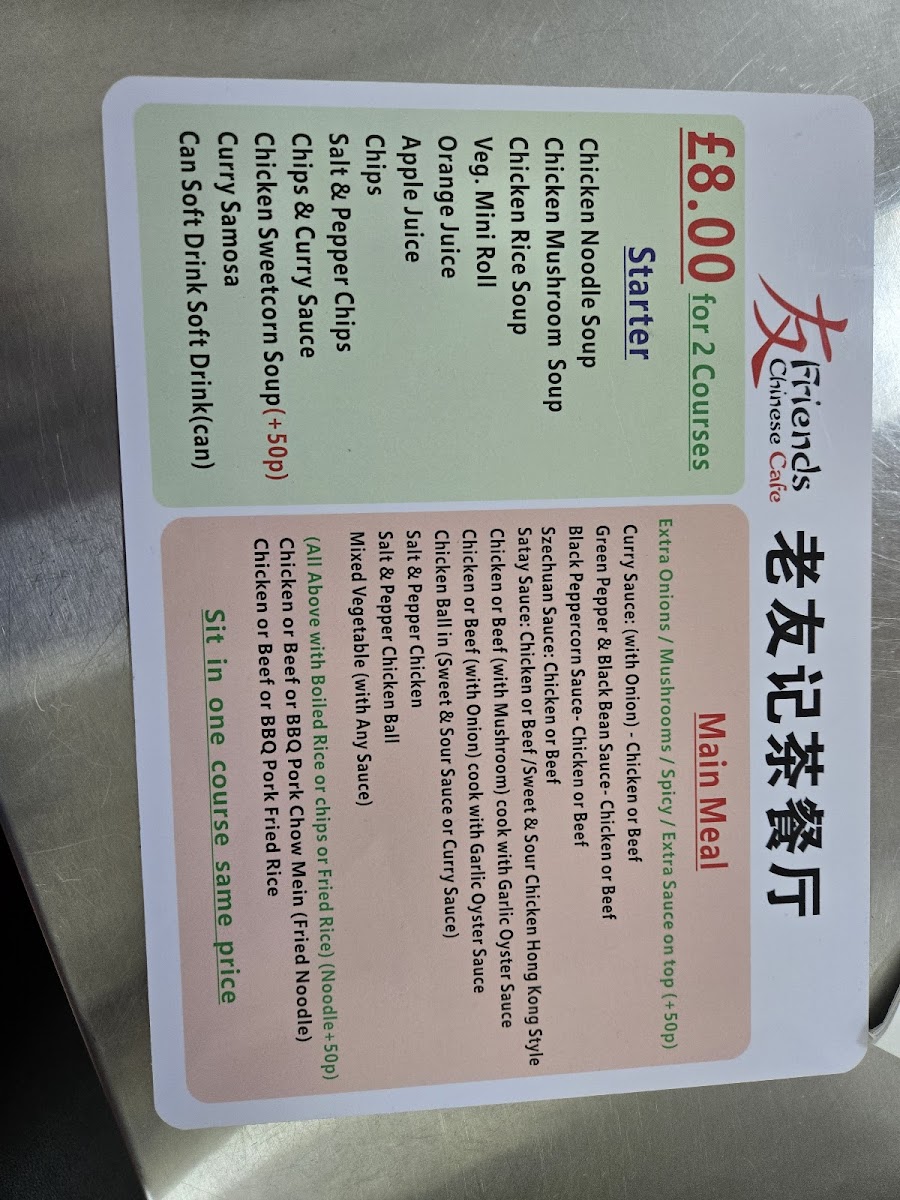 友 Friends
Chinese Cafe
老友记茶餐厅
£8.00 for 2 Courses
Starter
Chicken Noodle Soup
Chicken Mushroom Soup
Chicken Rice Soup
Veg. Mini Roll
Orange Juice
Apple Juice
Chips
Salt & Pepper Chips
Chips & Curry Sauce
Chicken Sweetcorn Soup(+50p)
Curry Samosa
Can Soft Drink Soft Drink(can)
Main Meal
Extra Onions / Mushrooms / Spicy / Extra Sauce on top (+50p)
Curry Sauce: (with Onion) - Chicken or Beef
Green Pepper & Black Bean Sauce- Chicken or Beef
Black Peppercorn Sauce- Chicken or Beef
Szechuan Sauce: Chicken or Beef
Satay Sauce: Chicken or Beef /Sweet & Sour Chicken Hong Kong Style
Chicken or Beef (with Mushroom) cook with Garlic Oyster Sauce
Chicken or Beef (with Onion) cook with Garlic Oyster Sauce
Chicken Ball in (Sweet & Sour Sauce or Curry Sauce)
Salt & Pepper Chicken
Salt & Pepper Chicken Ball
Mixed Vegetable (with Any Sauce)
(All Above with Boiled Rice or chips or Fried Rice) (Noodle+50p)
Chicken or Beef or BBQ Pork Chow Mein (Fried Noodle)
Chicken or Beef or BBQ Pork Fried Rice
Sit in one course same price